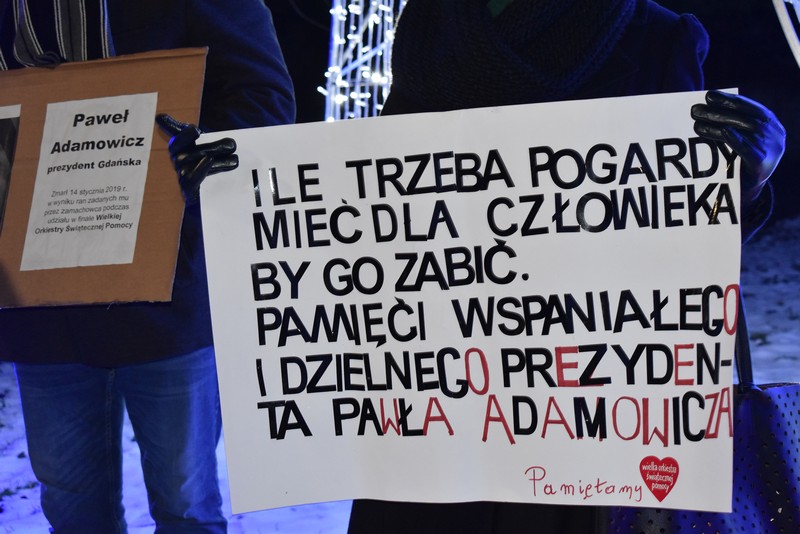 Paweł
Adamowicz
prezydent Gdańska
Zmarł 14 stycznia 2019 r.
w wyniku ran zadanych mu
przez zamachowca podczas
udziału w finale Wielkiej
Orkiestry Świątecznej Pomocy
ILE TRZEBA POGARDY
MIEĆ DLA CZŁOWIEKA
BY GO ZABIĆ.
PAMIĘCI WSPANIAŁEGO
I DZIELNEGO PREZYDEN-
TA PAWŁA ADAMOWICZA
Pamiętamy
wielka orkiestra
świątecznej
pomocy